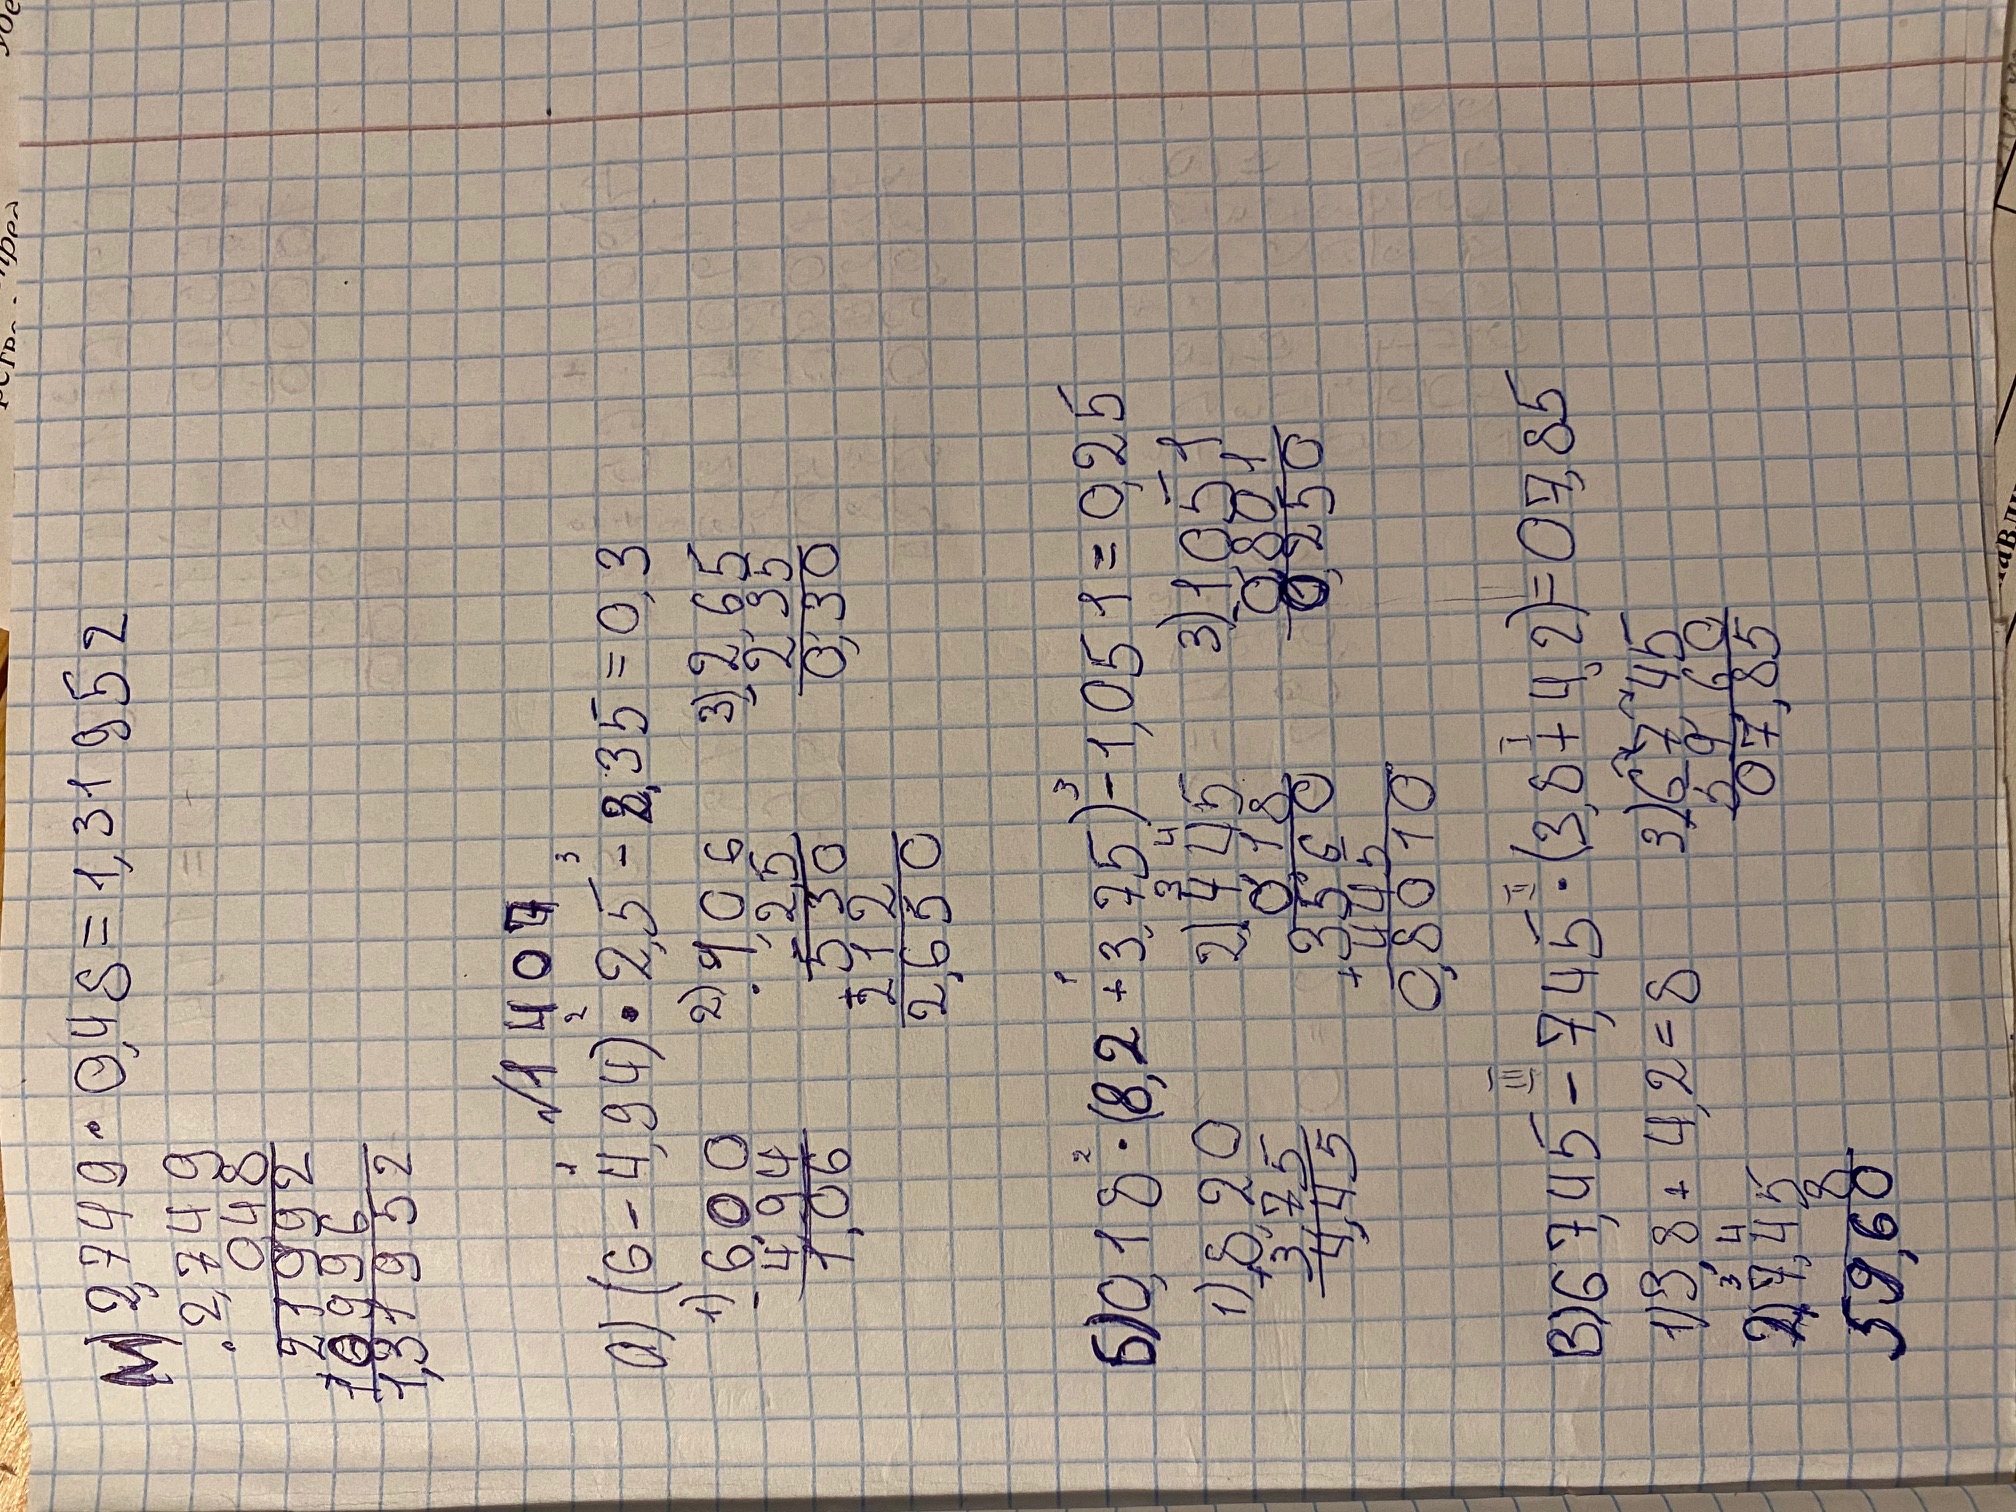 м) 2,749 · 0,48 = 1,31952
· 2,749
048
21992
10996
1,31952
√1407
а) (6 - 4,94) · 2,5 - 2,35 = 0,3
1) - 6,00
4,94
1,06
2) 1,06
· 2,5
+ 530
212
2,650
3) - 2,65
2,35
0,30
Б) 0,18 · (8,2 + 3,75) - 1,05 1 = 0,25
1) + 8,20
3,75
4,45
2) 4,45
0,18
3560
+ 445
0,8010
3) - 1,051
0,801
0,250
В) 67,45 - 7,45 · (3,8 + 4,2) = 07,85
1) 3,8 + 4,2 = 8
2) 7,45
8
59,60
3) 67,45
59,60
07,85